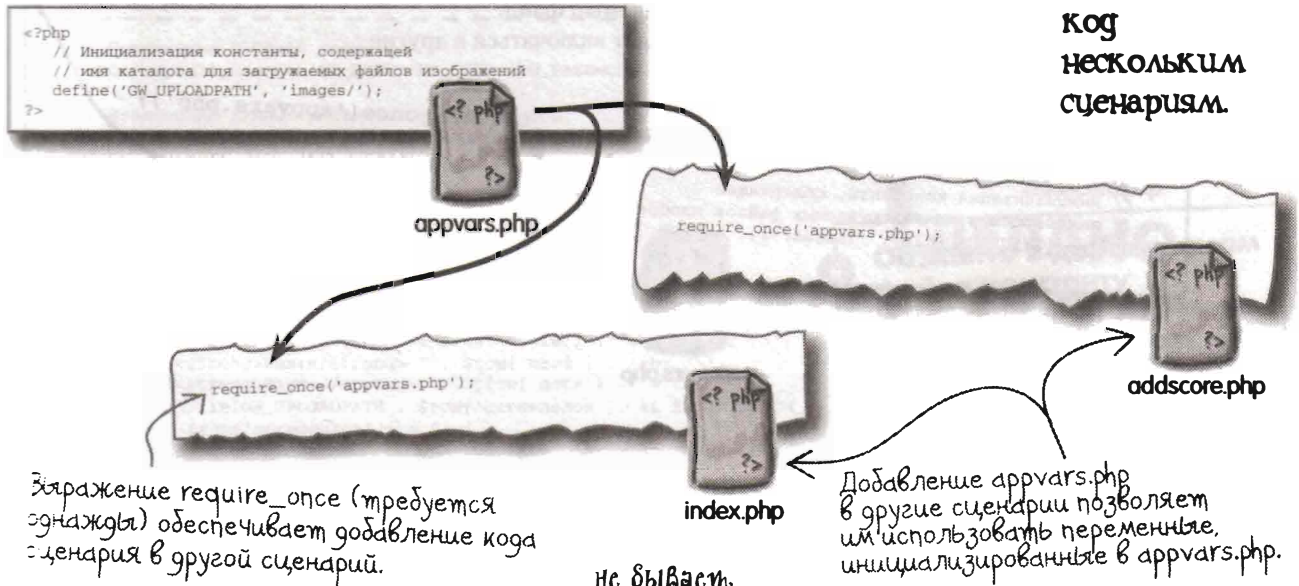 код
нескольким
сценариям.
<?php
// Инициализация константы, содержащей
// имя каталога для загружаемых файлов изображений
define('GW_UPLOADPATH', 'images/');
?>
<? php
?>
appvars.php
require_once('appvars.php');
<? php
?>
addscore.php
require_once('appvars.php');
<? php
?>
index.php
Выражение require_once (требуется
однажды) обеспечивает добавление кода
сценария в другой сценарий.
Добавление appvars.php
в другие сценарии позволяет
им использовать переменные,
инициализированные в appvars.php.
не бывает